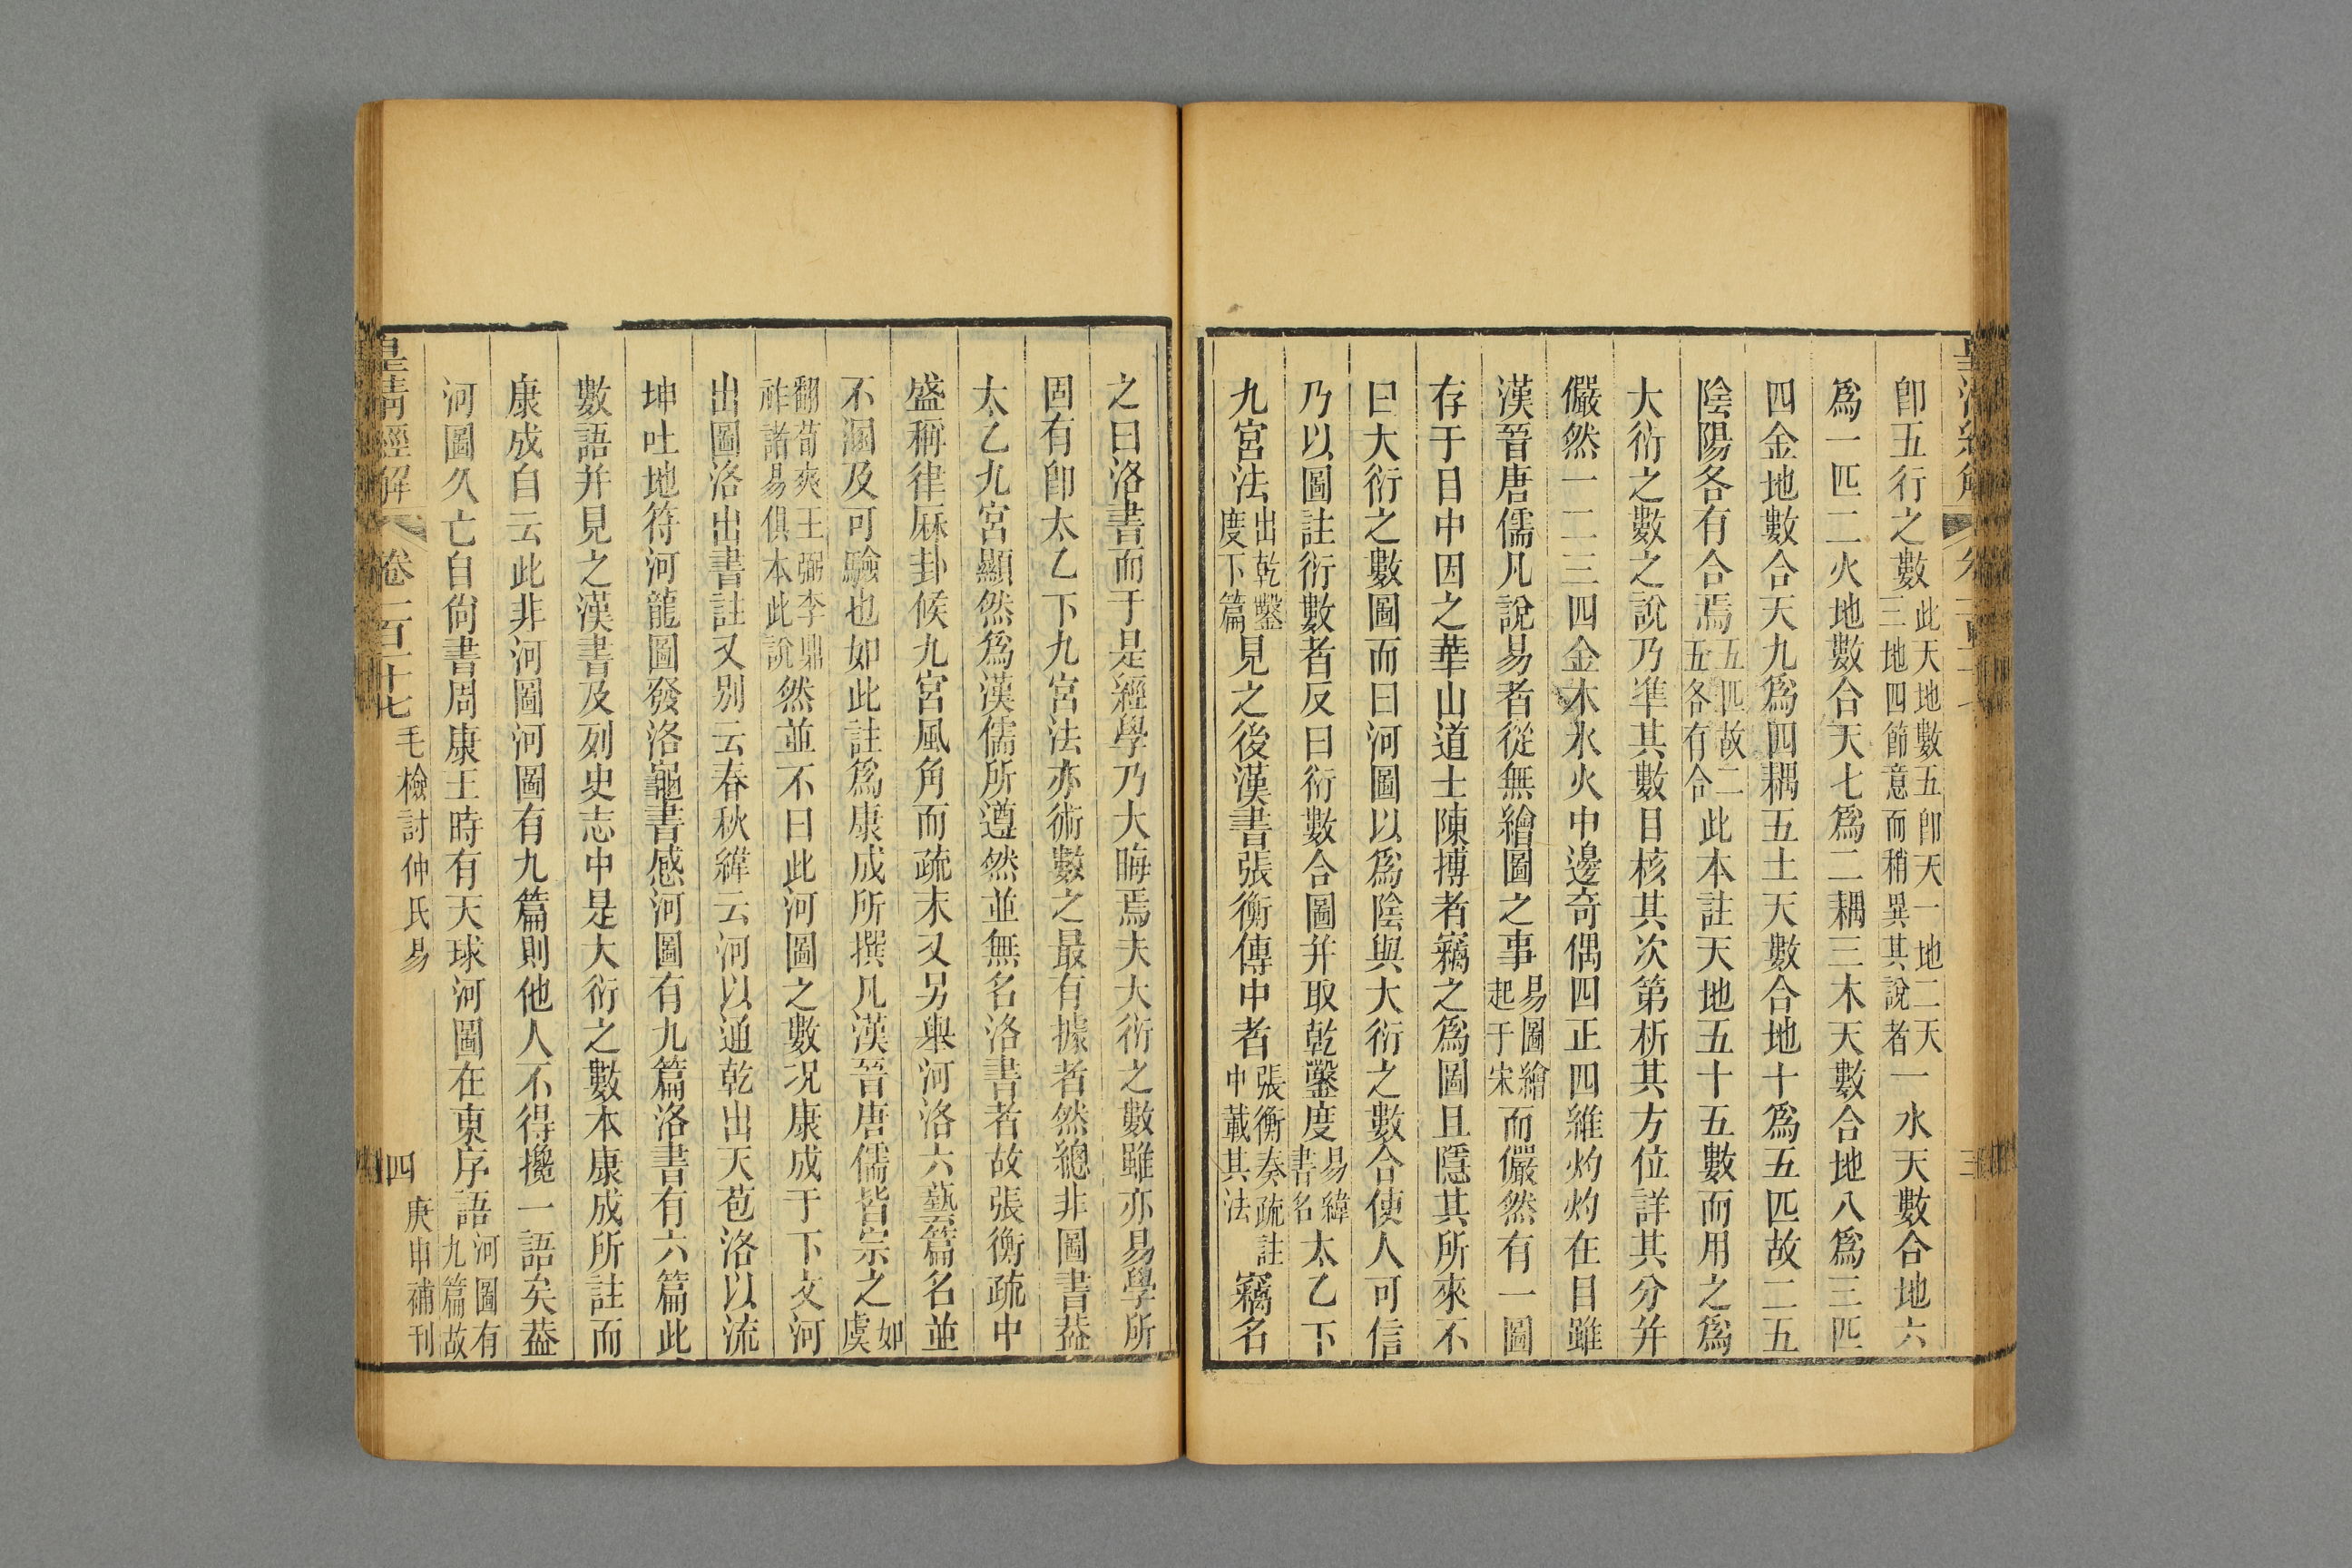 即五行之數此天地數五即天一地二天三地四節意而稍異其說者一水天數合地六
爲一匹二火地數合天七爲二耦三木天數合地八爲三匹
四金地數合天九爲四耦五土天數合地十爲五匹故二五
陰陽各有合焉五匹故二五各有合此本註天地五十五數而用之爲
大衍之數之說乃準其數目核其次第析其方位詳其分并
儼然一二三四金木水火中邊奇偶四正四維灼灼在目雖
漢晉唐儒凡說易者從無繪圖之事易圖繪起于宋而儼然有一圖
存于目中因之華山道士陳摶者竊之爲圖且隱其所來不
曰大衍之數圖而曰河圖以爲陰與大衍之數合使人可信
乃以圖註衍數者反曰衍數合圖并取乾鑿度易緯書名太乙下
九宮法出乾鑿度下篇見之後漢書張衡傳中者張衡奏疏註中載其法竊名
之曰洛書而于是經學乃大晦焉夫大衍之數雖亦易學所
固有卽太乙下九宮法亦術數之最有據者然總非圖書葢
太乙九宮顯然爲漢儒所遵然並無名洛書者故張衡疏中
盛稱律厤卦候九宮風角而疏末又另舉河洛六藝篇名並
不溷及可驗也如此註爲康成所撰凡漢晉唐儒皆宗之如虞
翻荀爽王弼李鼎祚諸易俱本此說然並不曰此河圖之數况康成于下文河
出圖洛出書註又别云春秋緯云河以通乾出天苞洛以流
坤吐地符河龍圖發洛龜書感河圖有九篇洛書有六篇此
數語并見之漢書及列史志中是大衍之數本康成所註而
康成自云此非河圖河圖有九篇則他人不得攙一語矣葢
河圖久亡自尙書周康王時有天球河圖在東序語河圖有九篇故
皇清經解 卷一百二十七 毛檢討仲氏易 四 庚申補刊